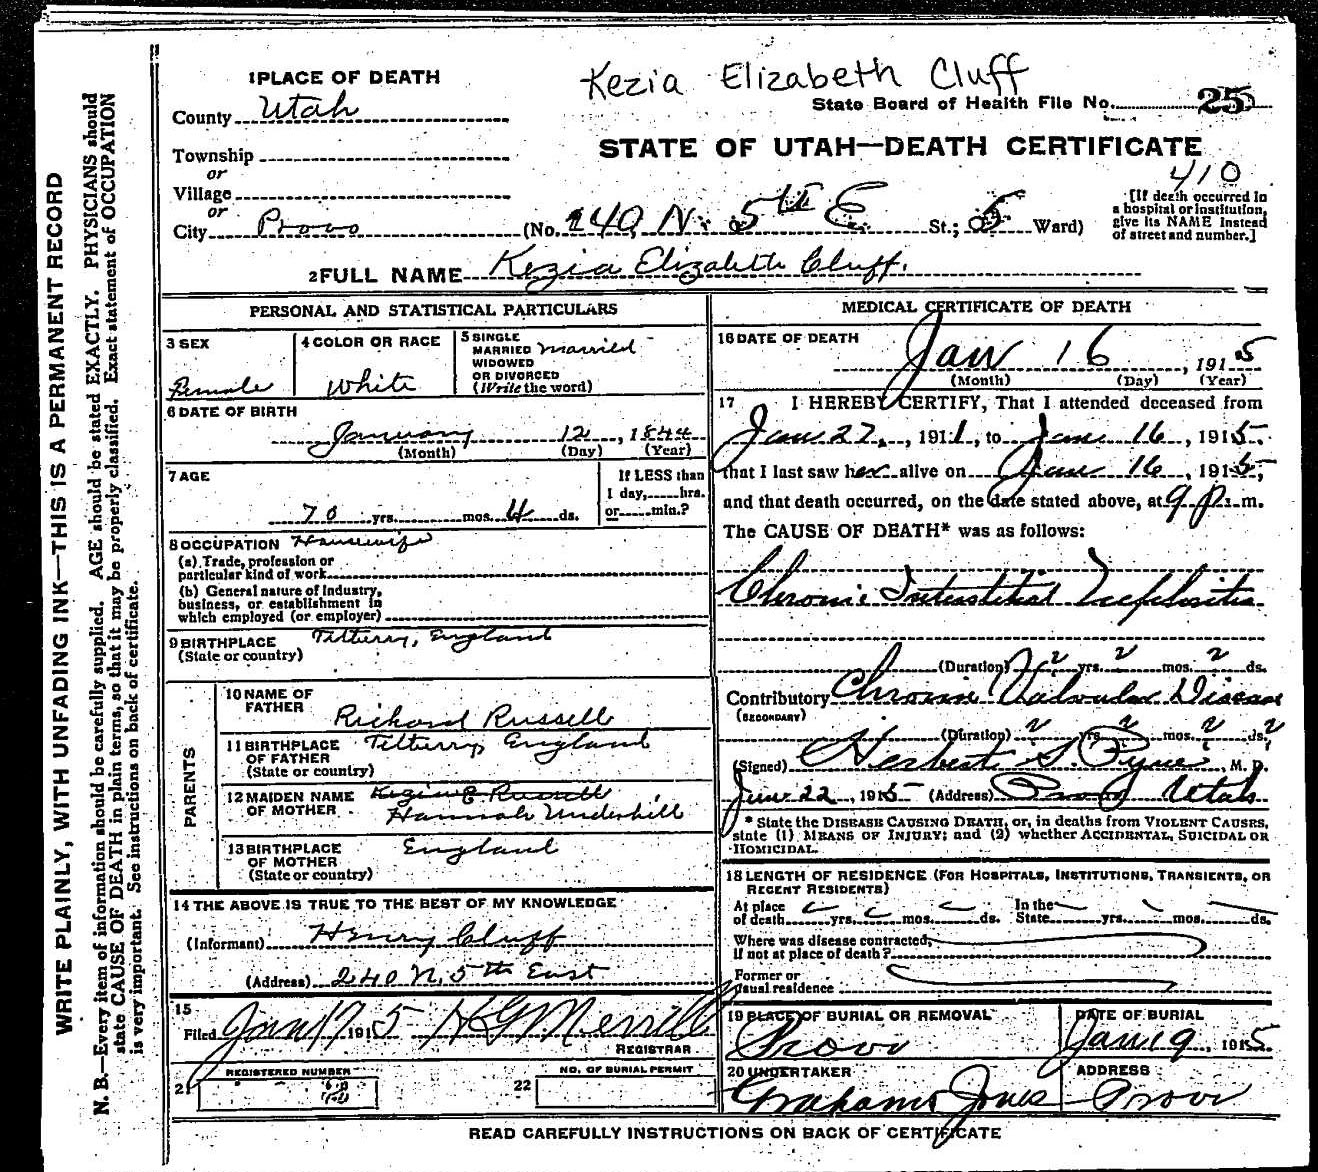 Kezia Elizabeth Cluff
1 PLACE OF DEATH
State Board of Health File No. 25
County Utah
STATE OF UTAH—DEATH CERTIFICATE
Township
or
Village
or
City Provo (No. 240, N. 5th E St.; 5 Ward)
410
[If death occurred in
a hospital or institution,
give its NAME instead
of street and number.]
2 FULL NAME Kezia Elizabeth Cluff.
PERSONAL AND STATISTICAL PARTICULARS
3 SEX
Female
4 COLOR OR RACE
White
5 SINGLE
MARRIED Married
WIDOWED
OR DIVORCED
(Write the word)
6 DATE OF BIRTH
January 12, 1844
(Month) (Day) (Year)
7 AGE
70 yrs. mos. 4 ds.
If LESS than
1 day, hrs.
or min.?
8 OCCUPATION Housewife
(a) Trade, profession or
particular kind of work
(b) General nature of industry,
business, or establishment in
which employed (or employer)
9 BIRTHPLACE
(State or country)
England
PARENTS
10 NAME OF
FATHER
Richard Russell
11 BIRTHPLACE
OF FATHER
(State or country)
England
12 MAIDEN NAME
OF MOTHER
Kezia E. Russell
Hannah Underhill
13 BIRTHPLACE
OF MOTHER
(State or country)
England
14 THE ABOVE IS TRUE TO THE BEST OF MY KNOWLEDGE
(Informant) Henry Cluff
(Address) 240 N. 5th East
15
Filed Jan 17 1915 H G Merrill
REGISTRAR
21
REGISTERED NUMBER
22
NO. OF BURIAL PERMIT
MEDICAL CERTIFICATE OF DEATH
16 DATE OF DEATH
Jan 16, 1915
(Month) (Day) (Year)
17 I HEREBY CERTIFY, That I attended deceased from
Jan 27, 1911, to Jan 16, 1915,
that I last saw her alive on Jan 16, 1915,
and that death occurred, on the date stated above, at 9 p. m.
The CAUSE OF DEATH* was as follows:
Chronic Interstitial Nephritis
(Duration) ? yrs. ? mos. ? ds.
Contributory Chronic Valvular Disease
(SECONDARY)
(Duration) ? yrs. ? mos. ? ds. ?
(Signed) Herbert S. Pyne, M. D.
22, 1915 (Address) Provo Utah
* State the DISEASE CAUSING DEATH, or, in deaths from VIOLENT CAUSES,
state (1) MEANS OF INJURY; and (2) whether ACCIDENTAL, SUICIDAL OR
HOMICIDAL.
18 LENGTH OF RESIDENCE (FOR HOSPITALS, INSTITUTIONS, TRANSIENTS, OR
RECENT RESIDENTS)
At place
of death yrs. mos. ds.
In the
State yrs. mos. ds.
Where was disease contracted,
if not at place of death?
Former or
usual residence
19 PLACE OF BURIAL OR REMOVAL
Provo
DATE OF BURIAL
Jan 19, 1915.
20 UNDERTAKER
Graham & Jones
ADDRESS
Provo
READ CAREFULLY INSTRUCTIONS ON BACK OF CERTIFICATE
WRITE PLAINLY, WITH UNFADING INK—THIS IS A PERMANENT RECORD
N. B.—Every item of information should be carefully supplied. AGE should be stated EXACTLY. PHYSICIANS should
state CAUSE OF DEATH in plain terms, so that it may be properly classified. Exact statement of OCCUPATION
is very important. See instructions on back of certificate.